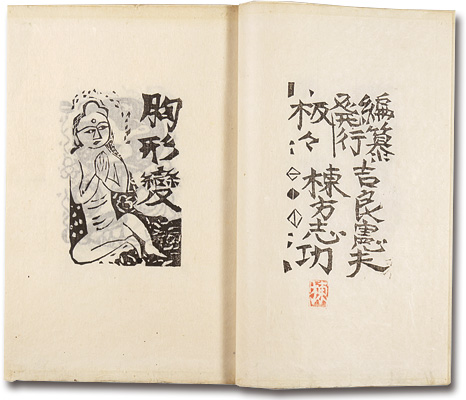 編纂 吉良憲夫
発行
板々 棟方志功
棟
胸形變